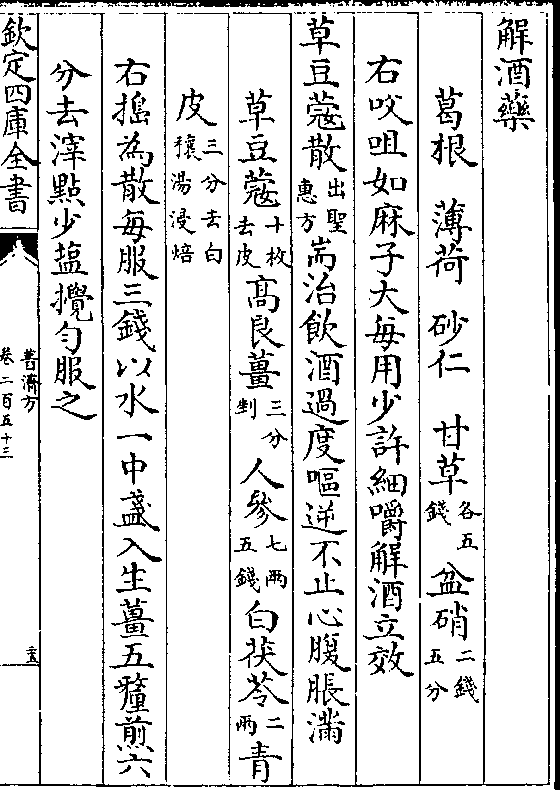 解酒藥
葛根 薄荷 砂仁 甘草各五錢 盆硝二錢五分
右㕮咀如麻子大每用少許細嚼解酒立效
草豆蔻散出聖惠方耑治飲酒過度嘔逆不止心腹脹滿
草豆蔻十枚去皮高良薑三分剉人參七兩五錢白茯苓二兩青
皮三分去白穰湯浸焙
右搗為散每服三錢以水一中盞入生薑五釐煎六
分去滓點少塩攪勻服之
欽定四庫全書
普濟方
卷二百五十三